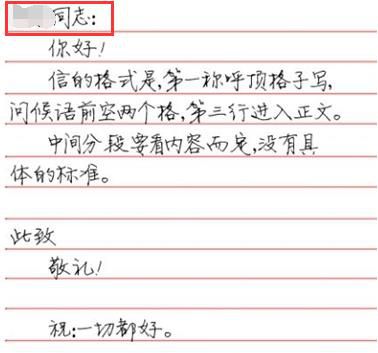 同志:
你好!
信的格式是,第一称呼顶格子写,
问候语前空两个格,第三行进入正文。
中间分段要看内容而定,没有具
体的标准。
此致
敬礼!
祝:一切都好。